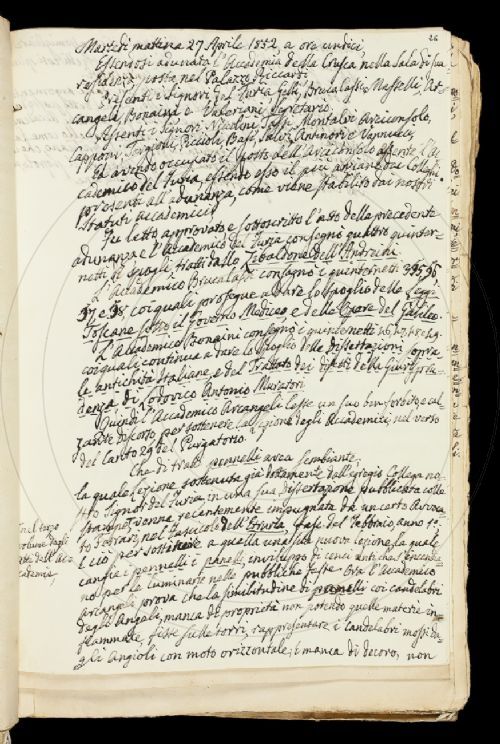 26
Martedì mattina 27 Aprile 1852, a ore undici
Essendosi adunata l'Accademia della Crusca nella Sala di sua
residenza posta nel Palazzo Riccardi
Presenti i Signori Del Furia, Brucalassi, Masselli, Ar-
cangeli, Bonaini e Valeriani Segretario.
Assenti i Signori Niccolini, Montalvi Arciconsolo,
Capponi, Targioni, Becchi, Salvi, Antinori e Vannucci,
Ed avendo occupato il posto dell'Arciconsolo assente l'Ac-
cademico Del Furia, essendo esso il più anziano dei Colleghi
presenti all'adunanza, come viene stabilito dai nostri
Statuti accademici
Fu letto approvato e sottoscritto l'atto della precedente
adunanza e l'Accademico Del Furia consegnò quattro quinter-
netti di spogli tratti dallo Zibaldone dell'Andreini.
L'Accademico Brucalassi consegnò i quinternetti 35, 36
37 e 38, coi quali prosegue a dare lo spoglio delle Leggi
Toscane sotto il Governo Mediceo e delle Opere del Galileo.
L'Accademico Bonaini consegnò i quinternetti 46, 47, 48 e 49.
coi quali continua a dare lo spoglio delle dissertazioni sopra
le antichità Italiane, e del Trattato dei difetti della Giurispru-
denza di Lodovico Antonio Muratori
Quindi l'Accademico Arcangeli lesse un suo ben forbito e cal-
zante discorso per sostenere la lezione degli Accademici, nel verso
del Canto 29 del Purgatorio.
Che di tratti pennelli avea sembiante,
la quale lezione sostenuta già dottamente dall'egregio Collega no-
stro Signor Del Furia in una sua dissertazione pubblicata colle
stampe, venne recentemente impugnata da un certo
Ferrari nel fascicolo dell'Etruria, del Febbraio anno 1°.
E ciò per sostituire a quella una sua nuova lezione, la quale
cambia i pennelli in panelli, inviluppo di cenci unti che s'accendo-
no per le luminarie nelle pubbliche feste. Ora l'Accademico
Arcangeli prova che la similitudine di panelli coi candelabri
degli Angeli, manca di proprietà non potendo quelle materie in-
fiammate fisse sulle torri, rappresentare i candelabri mossi da-
gli Angioli con moto orizzontale; e manca di decoro, non
in nel terzo
volume degli
Atti dell'Ac-
cademia